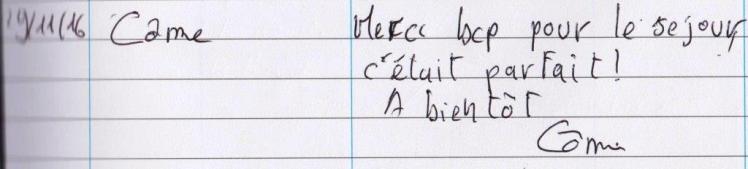 19/11/16 Come Merci bcp pour le sejour
c'était parfait!
A bientôt
Come